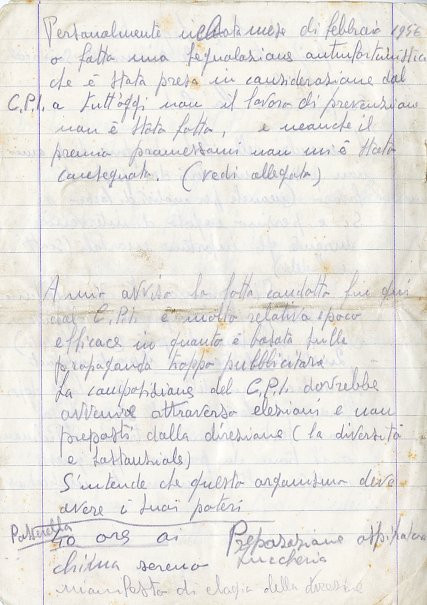 Personalmente nel mese di febbraio 1956
o fatta una segnalazione antinfortunistica
che è stata presa in considerazione dal
C.P.I. a tutt'oggi non il lavoro di prevenzione
non è stato fatto, e neanche il
premio promessomi non mi è stato
consegnato. (vedi allegato)
A mio avviso la lotta condotta fin qui
dal C.P.I. è molto relativa e poco
efficace in quanto è basata sulla
propaganda troppo pubblicitaria
La composizione del C.P.I. dovrebbe
avvenire attraverso elezioni e non
preposti dalla direzione (la diversità
e sostanziale)
S'intende che questo organismo deve
avere i suoi poteri
Passerella
40 ore ai
Preparazione aspiratore
zuccheria
sereno
manifesto di elogio della direzione